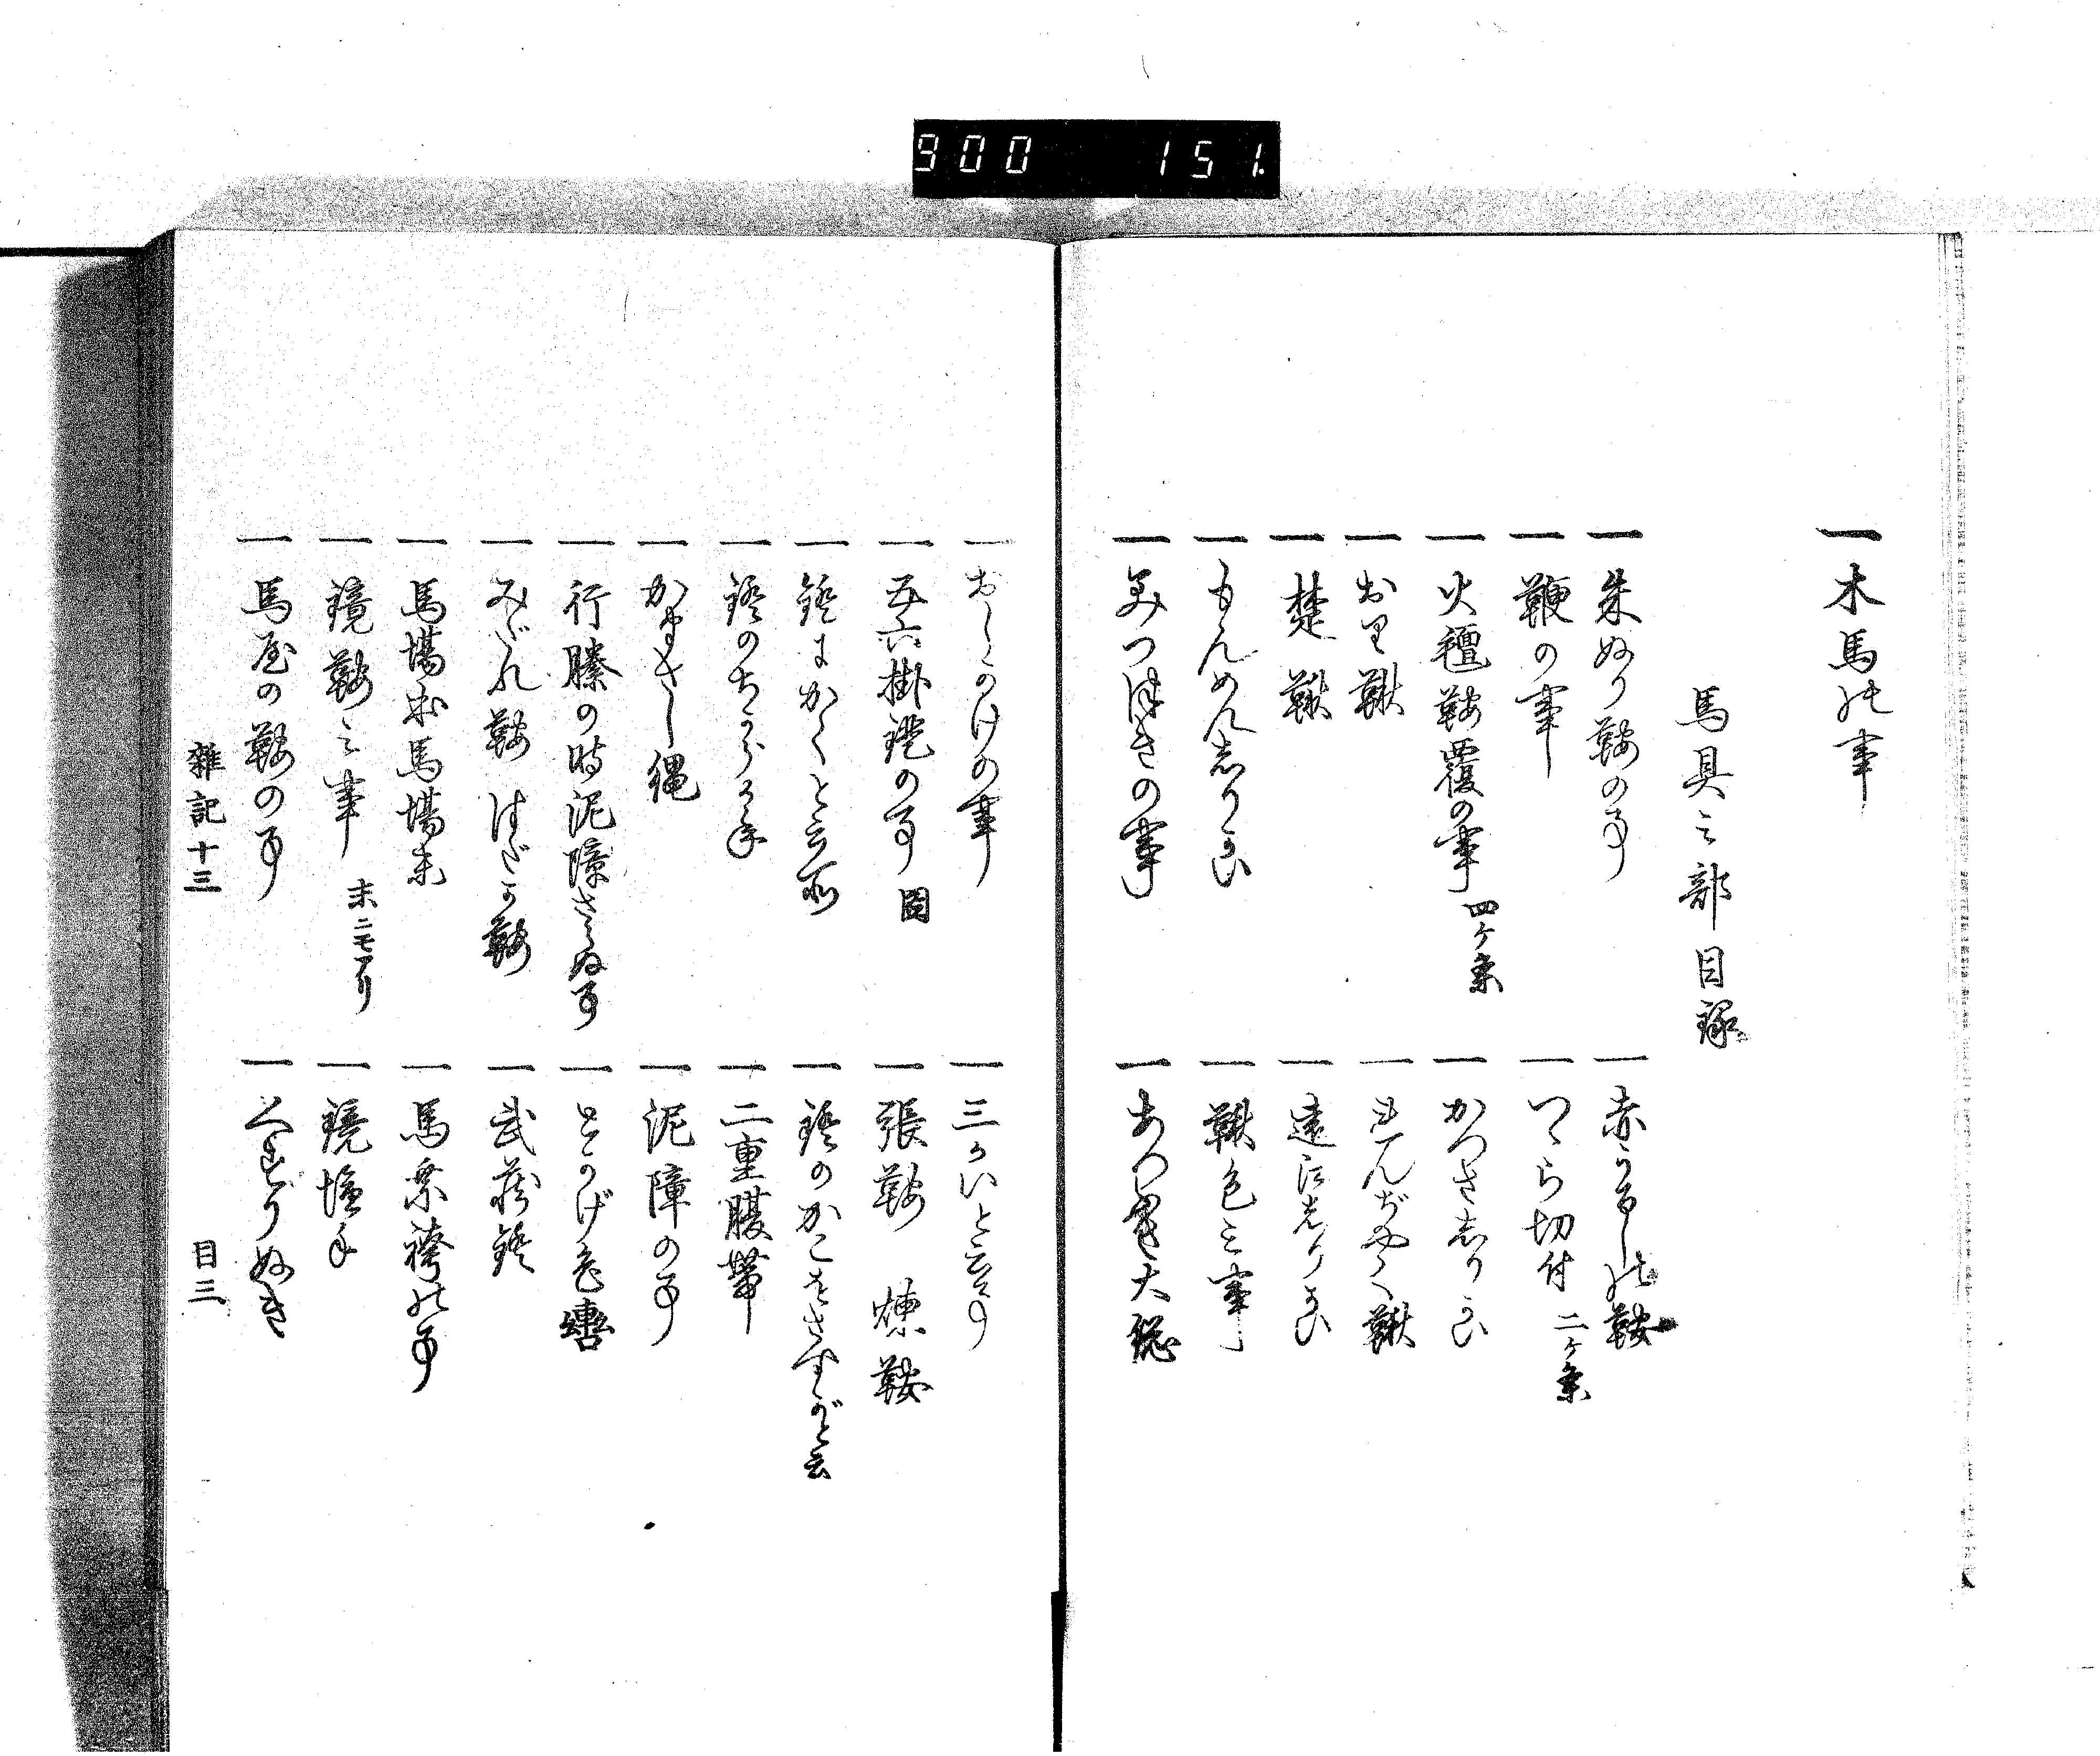 900 151.
一 木馬の事
馬具之部目録
一 朱ぬり鞍の事
一 赤うるしの鞍
一 鞭の事
一 つゝら切付 二ケ条
一 火氈鞍覆の事 四ケ条
一 かつさ志りかい
一 おり鞦
一 れんぢやく鞦
一 楚鞦
一 遠江志りかい
一 もんめん志りかい
一 鞦色之事
一 みつ付きの事
一 あつふさ大総
一 おしかけの事
一 三かいと云事
一 五六掛鐙の事 図
一 張鞍 煉鞍
一 鐙にかくと云所
一 鐙のかこをさすがと云
一 鐙のちから革
一 二重腹帯
一 かなさし縄
一 泥障の事
一 行縢の時泥障さゝぬ事
一 とかげ色轡
一 みだれ鞍 はだか鞍
一 武蔵鐙
一 馬場本馬場末
一 馬乗袴の事
一 鏡鞍之事 末ニモアリ
一 鏡塩手
一 馬屋の鞍の事
一 くすりぬき
雑記十三
目三